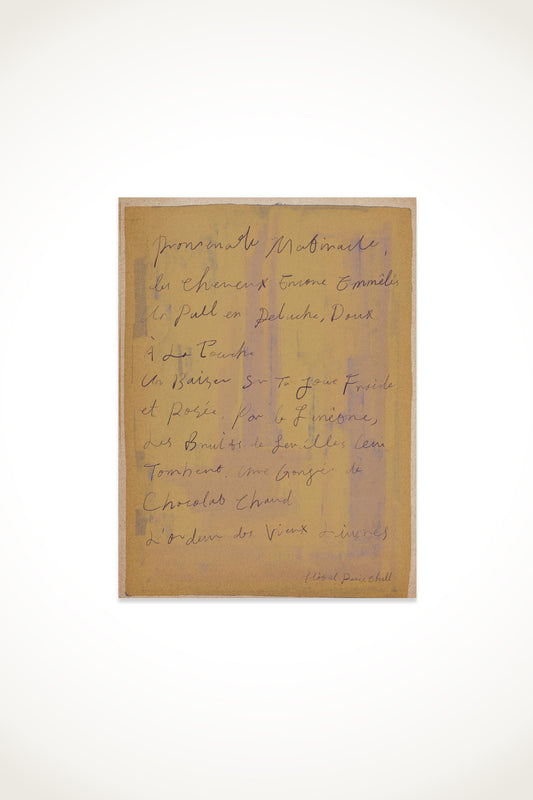 Promenade Matinale,
les cheveux Encore Emmêlés
Un Pull en Peluche, Doux
À La Touche
Un Baiser Sur Ta Joue Froide
et Rosée. Par la Fenêtre,
Les Bruits de Feuilles
Tombent. Une Gorgée de
Chocolat Chaud
L'odeur des Vieux Livres